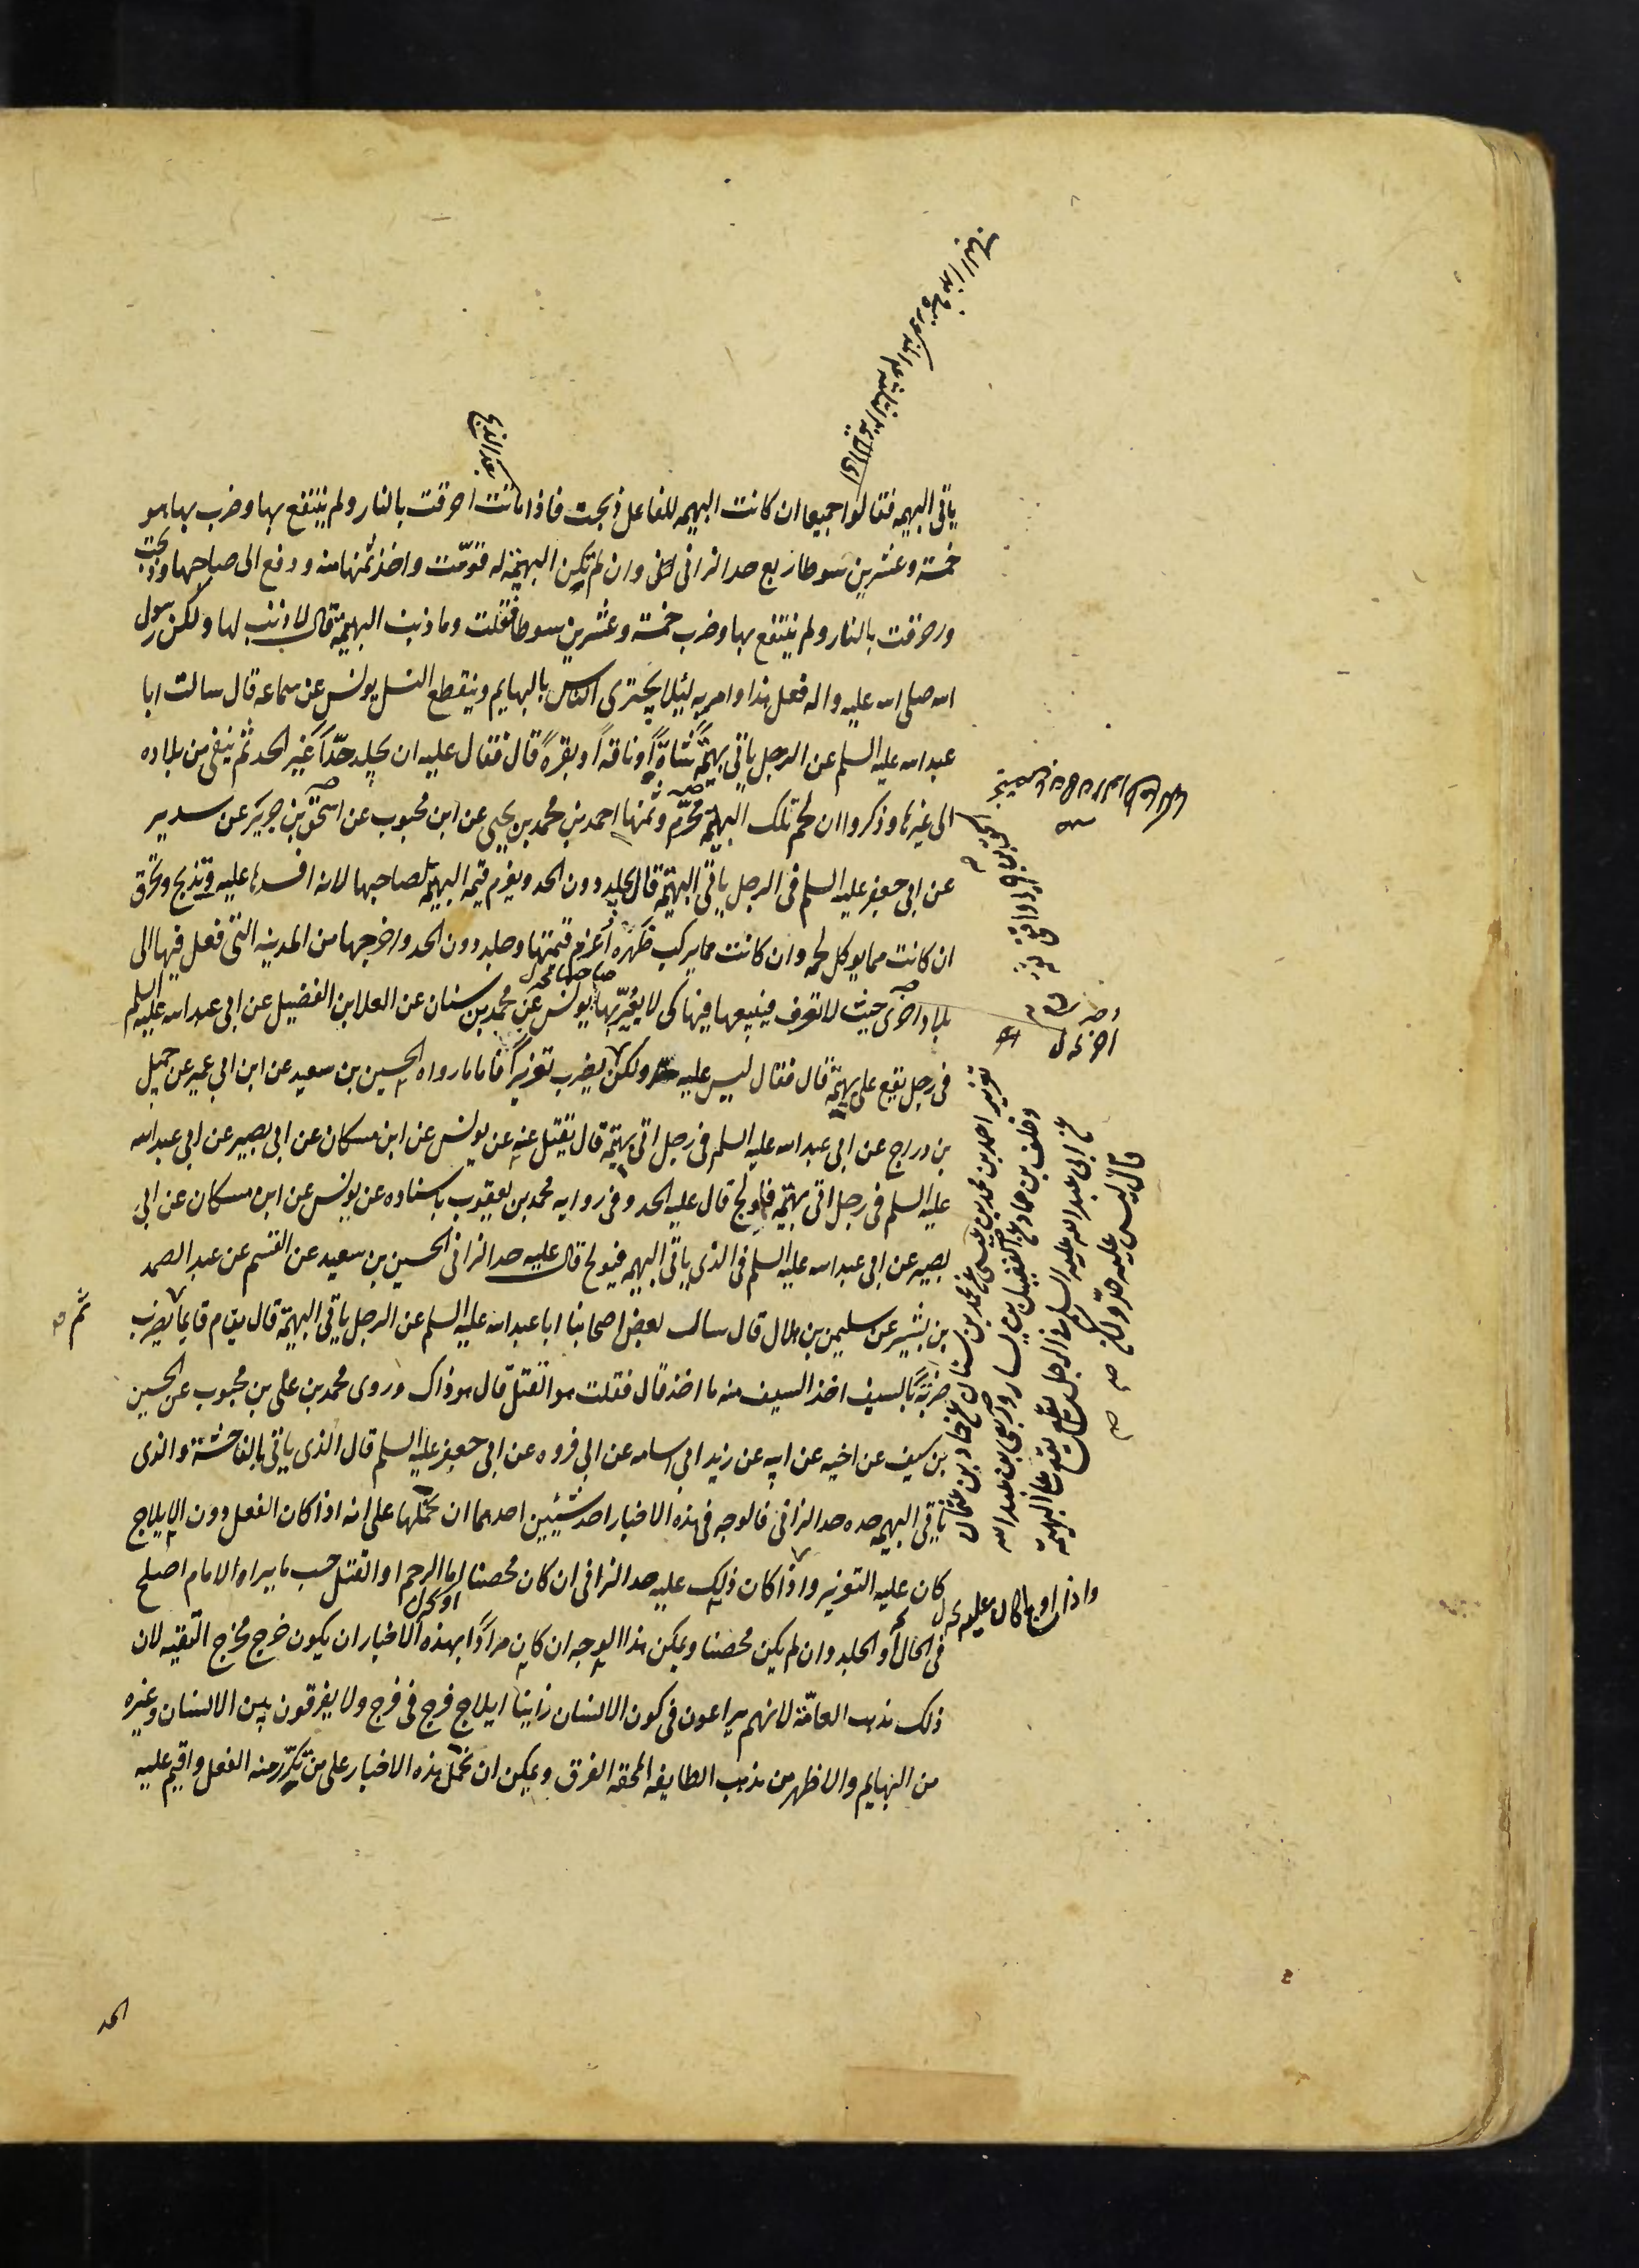 ياتى البهيمه فقالوا جميعا ان كانت البهيمه للفاعل ذبحت فاذا ماتت احرقت بالنار ولم ينتفع بها وضرب بها هو
خمسة وعشرين سوطا ربع حد الزانى وان لم تكن البهيمة له قوّمت واخذ ثمنها منه ودفع الى صاحبها وذبحت
وحرقت بالنار ولم ينتفع بها وضرب خمسة وعشرين سوطا فقلت وما ذنب البهيمة قال لا ذنب لها ولكن رسول
الله صلى الله عليه واله فعل هذا وامر به ليلا يجترى الناس بالبهايم وينقطع النسل يونس عن سماعه قال سالت ابا
عبد الله عليه السلم عن الرجل ياتى بهيمة شاةً او ناقةً او بقرةً قال فقال عليه ان يجلد حدّاً غير الحد ثم ينفى من بلاده
الى غيرها وذكروا ان لحم تلك البهيمة محرّم وثمنها احمد بن محمد بن يحيى عن ابن محبوب عن اسحق بن جرير عن سدير
عن ابى جعفر عليه السلم فى الرجل ياتى البهيمة قال يجلد دون الحد ويغرم قيمة البهيمة لصاحبها لانه افسدها عليه وتذبح وتحرق
ان كانت مما يوكل لحمه وان كانت مما يركب ظهره أغرم قيمتها وجلد دون الحد واخرجها من المدينه التى فعل فيها الى
بلاد اخرى حيث لا تعرف فيبيعها فيها كى لا يعيّر بها يونس عن محمد بن سنان عن العلا بن الفضيل عن ابى عبد الله عليه السلم
فى رجل يقع على بهيمة قال فقال ليس عليه حد ولكن يضرب تعزيراً فاما ما رواه الحسين بن سعيد عن ابن ابى عمير عن جميل
بن دراج عن ابى عبد الله عليه السلم فى رجل اتى بهيمة قال يقتل عنه عن يونس عن ابن مسكان عن ابى بصير عن ابى عبد الله
عليه السلم فى رجل اتى بهيمة فاولج قال عليه الحد وفى روايه محمد بن يعقوب باسناده عن يونس عن ابن مسكان عن ابى
بصير عن ابى عبد الله عليه السلم فى الذى ياتى البهيمه فيولج قال عليه حد الزانى الحسين بن سعيد عن القسم عن عبد الصمد
بن بشير عن سليمن بن هلال قال سال بعض اصحابنا ابا عبد الله عليه السلم عن الرجل ياتى البهيمة قال يقام قايما يضرب
ضربةً بالسيف اخذ السيف منه ما اخذ قال فقلت هو القتل قال هو ذاك وروى محمد بن على بن محبوب عن الحسين
بن سيف عن اخيه عن ابيه عن زيد ابى اسامه عن ابى فروه عن ابى جعفر عليه السلم قال الذى ياتى بالفاحشة والذى
ياتى البهيمه حده حد الزانى فالوجه فى هذه الاخبار احد شيئين احدهما ان نحملها على انه اذا كان الفعل دون الايلاج
كان عليه التعزير واذا كان ذلك عليه حد الزانى ان كان محصنا اما الرجم او القتل حسب ما يراه الامام اصلح
فى الحال او الجلد وان لم يكن محصنا ويمكن هذا الوجه ان كان مراداً بهذه الاخبار ان يكون خرج مخرج التقيه لان
ذلك مذهب العامّة لانهم يراعون فى كون الانسان زانيا ايلاج فرج فى فرج ولا يفرقون بين الانسان وغيره
من البهايم والاظهر من مذهب الطايفه المحقه الفرق ويمكن ان نحمل هذه الاخبار على من تكرّر منه الفعل واقيم عليه
بعد الذبح
تعزير احمد بن محمد بن عيسى عن محمد بن سنان عن حماد بن عثمان
وخلف بن حماد عن الفضيل بن يسار وربعى بن عبد الله
عن ابى عبد الله عليه السلم فى الرجل يقع على البهيمة
قال ليس عليه حدّ ولكن
ثم
الحد